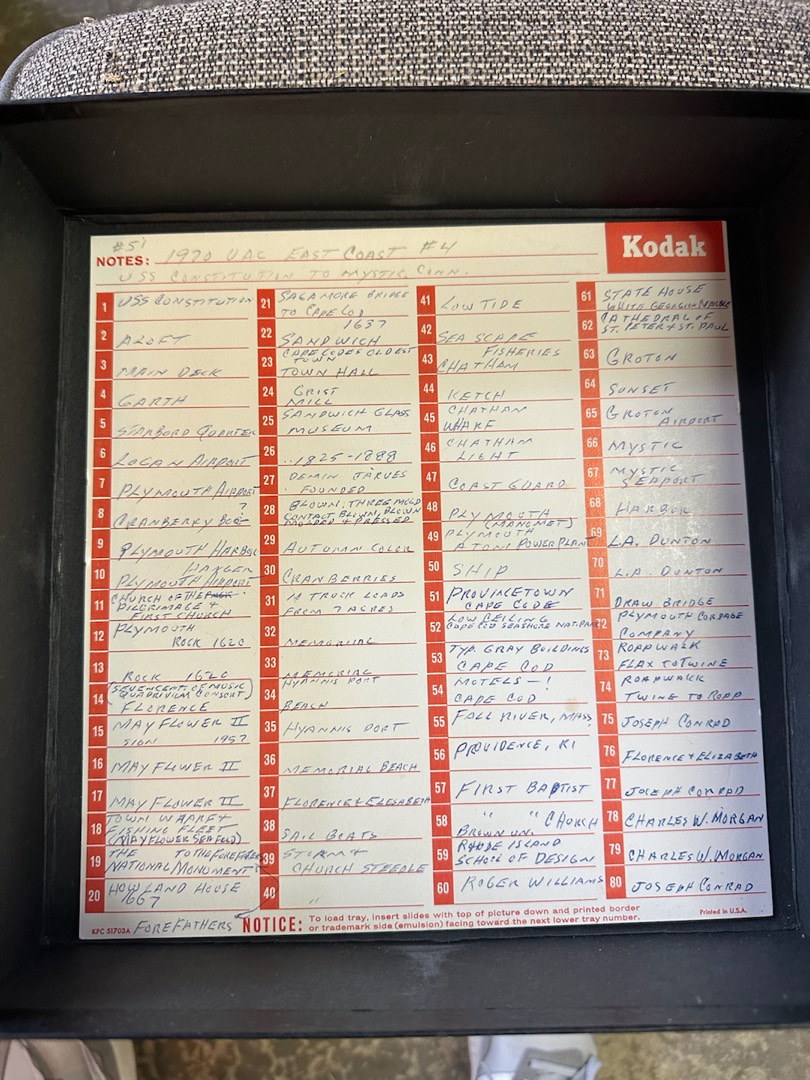 #5
NOTES: 1970 UAC EAST COAST #4
USS CONSTITUTION TO MYSTIC, CONN.
Kodak
1 USS CONSTITUTION
2 ALOFT
3 MAIN DECK
4 GARTH
5 STARBORD QUARTER
6 LOGAN AIRPORT
7 PLYMOUTH AIRPORT
8 ?
CRANBERRY BOG
9 PLYMOUTH HARBOR
10 HANGER
PLYMOUTH AIRPORT
11 CHURCH OF THE
PILGRIMAGE +
FIRST CHURCH
12 PLYMOUTH
ROCK 1620
13 ROCK 1620
14 (SEVENCENT. OF MUSIC
QUADRIVIUM CONSORT)
FLORENCE
15 MAYFLOWER II
SIGN 1957
16 MAYFLOWER II
17 MAYFLOWER II
18 TOWN WARF +
FISHING FLEET
(MAYFLOWER SEAFOOD)
19 THE TO THE FOREFATHERS
NATIONAL MONUMENT
20 HOWLAND HOUSE
1667
FOREFATHERS
21 SAGAMORE BRIDGE
TO CAPE COD
22 1637
SANDWICH
23 CAPE CODES OLDEST
TOWN
TOWN HALL
24 GRIST
MILL
25 SANDWICH GLASS
MUSEUM
26 1825-1888
27 DEMIN JARVES
FOUNDED
28 BLOWN, THREE MOLD
CONTACT BLOWN, BLOWN
MOLDED + PRESSED
29 AUTUMN COLOR
30 CRANBERRIES
31 10 TRUCK LOADS
FROM 7 ACRES
32 MEMORIAL
33 MEMORIAL
34 HYANNIS PORT
BEACH
35 HYANNIS PORT
36 MEMORIAL BEACH
37 FLORENCE + ELESABETH
38 SAIL BOATS
39 STORM +
CHURCH STEEPLE
40 "
41 LOW TIDE
42 SEA SCAPE
43 FISHERIES
CHATHAM
44 KETCH
45 CHATHAM
WHARF
46 CHATHAM
LIGHT
47 COAST GUARD
48 PLYMOUTH
49 (MANOMET)
PLYMOUTH
ATOM POWER PLANT
50 SHIP
51 PROVINCETOWN
CAPE CODE
52 LOW CEILING
CAPE COD SEASHORE NAT. PARK
53 TYP. GRAY BUILDINGS
CAPE COD
54 MOTELS-!
CAPE COD
55 FALL RIVER, MASS
56 PROVIDENCE, RI
57 FIRST BAPTIST
58 " " CHURCH
BROWN UN.
59 RHODE ISLAND
SCHOOL OF DESIGN
60 ROGER WILLIAMS
61 STATE HOUSE
WHITE GEORGIA MARBLE
62 CATHEDRAL OF
ST. PETER + ST. PAUL
63 GROTON
64 SUNSET
65 GROTON
AIRPORT
66 MYSTIC
67 MYSTIC
SEAPORT
68 HARBOR
69 L.A. DUNTON
70 L.A. DUNTON
71 DRAW BRIDGE
72 PLYMOUTH CORDAGE
COMPANY
73 ROAPWALK
FLAX TO TWINE
74 ROAPWALK
TWINE TO ROAP
75 JOSEPH CONRAD
76 FLORENCE + ELIZABETH
77 JOSEPH CONRAD
78 CHARLES W. MORGAN
79 CHARLES W. MORGAN
80 JOSEPH CONRAD
KPC 51703A
NOTICE: To load tray, insert slides with top of picture down and printed border
or trademark side (emulsion) facing toward the next lower tray number.
Printed in U.S.A.